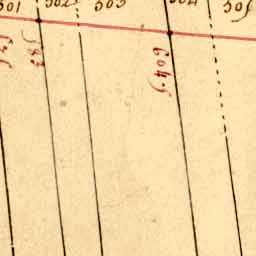 501 502 503 504 505
583
604.5